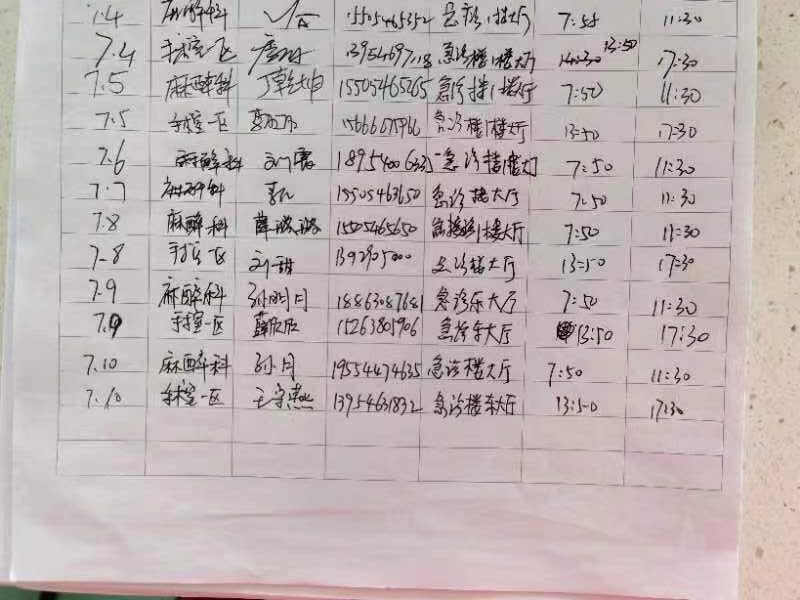 7.4 麻醉科 15505465352 急诊1楼大厅 7:50 11:30
7.4 手术室一区 急诊楼1楼大厅 13:50 17:30
7.5 麻醉科 丁乾坤 15505465265 急诊楼1楼大厅 7:50 11:30
7.5 手术室一区 急诊楼1楼大厅 13:50 17:30
7.6 麻醉科 急诊楼1楼大厅 7:50 11:30
7.7 麻醉科 15505463650 急诊楼大厅 7:50 11:30
7.8 麻醉科 薛波波 15505465650 急诊1楼大厅 7:50 11:30
7-8 手术室一区 刘甜 急诊楼大厅 13:50 17:30
7.9 麻醉科 孙明月 18863087681 急诊东大厅 7:50 11:30
7.9 手术室一区 15263805906 急诊东大厅 13:50 17:30
7.10 麻醉科 孙月 19554474635 急诊楼大厅 7:50 11:30
7.10 手术室一区 王字燕 13954631832 急诊楼东大厅 13:50 17:30